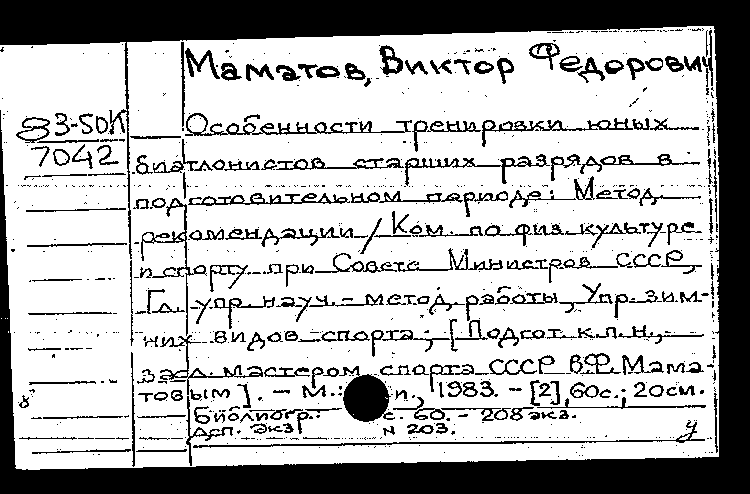 Маматов, Виктор Федорович
83-50К
7042
Особенности тренировки юных
биатлонистов старших разрядов в
подготовительном периоде: Метод.
рекомендации / Ком. по физ. культуре
и спорту при Совете Министров СССР,
Гл. упр. науч.-метод. работы, Упр. зим-
них видов спорта; [Подгот. к.п.н.,
засл. мастером спорта СССР В.Ф. Мама-
товым]. - М.: 1983. - [2], 60с.; 20см.
Библиогр.: с. 60. - 208 экз.
Дсп. экз N 203.
у